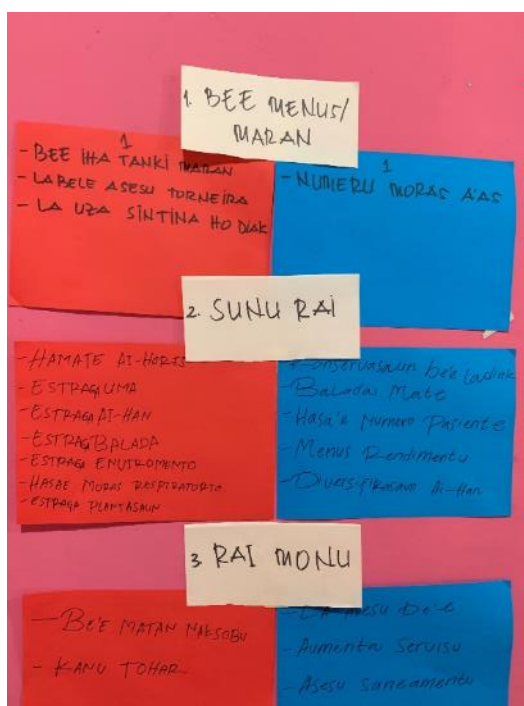 1. BEE MENUS/
MARAN
1
- BEE IHA TANKI MARAN
- LABELE ASESU TORNEIRA
- LA UZA SINTINA HO DIAK
1
- NUMERU MORAS A'AS
2. SUNU RAI
- HAMATE AI-HORIS
- ESTRAGA UMA
- ESTRAGA AI-HAN
- ESTRAGA BALADA
- ESTRAGA ENVIROMENTO
- HASAE MORAS RESPIRATORIO
- ESTRAGA PLANTASAUN
- Konservasaun be'e ladiak
- Balada Mate
- Hasa'e Numero Pasiente
- Menus Rendimentu
- Ai-Han
3. RAI MONU
- BE'E MATAN NAKSOBU
- KANU TOHAR
- La Asesu Be'e
- Aumenta Servisu
- Asesu Saneamentu